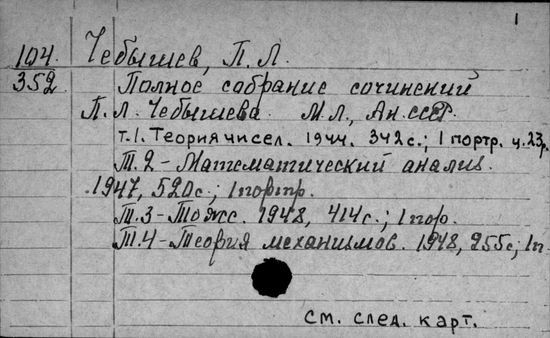 1
104. Чебышев, П. Л.
352 Полное собрание сочинений
П. Л. Чебышева. М.Л., Ан.СССР.
т.1. Теория чисел. 1944. 342 с.; 1 портр. ц. 23р.
Т.2 - Математический анализ.
1947, 520 с.; 1 портр.
Т.3 - Тожс. 1948, 414 с.; 1 пор.
Т.4 - Теория механизмов. 1948, 255 с; 1 п.
см. след. карт.